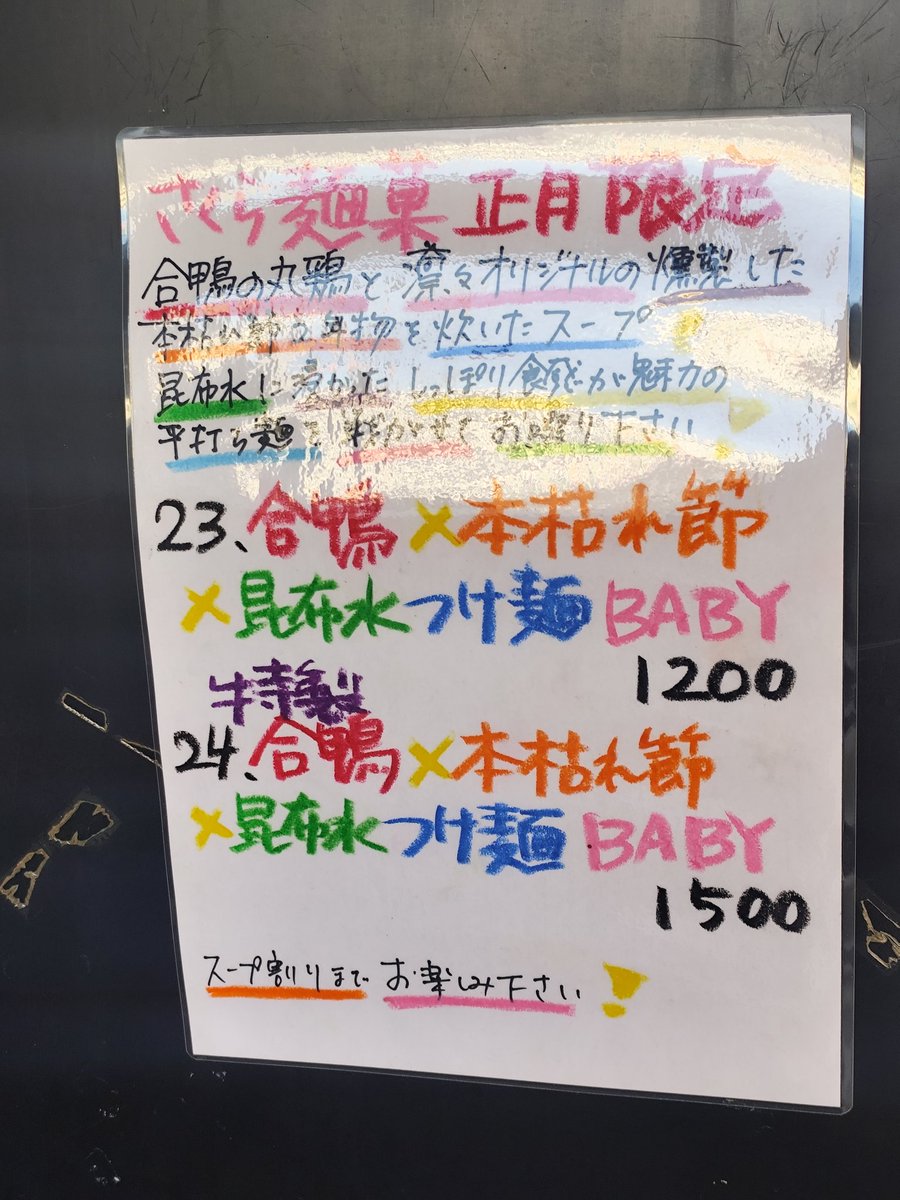 さくら麺菓 正月限定
合鴨の丸鶏と凛々オリジナルの燻製した
本枯れ節な乾物を炊いたスープ
昆布水に浸かった しっぽり食感が魅力の
平打ち麺を 絡ませて お啜り下さい
23、合鴨×本枯れ節
×昆布水つけ麺 BABY
1200
特製
24、合鴨×本枯れ節
×昆布水つけ麺 BABY
1500
スープ割りまで お楽しみ下さい!